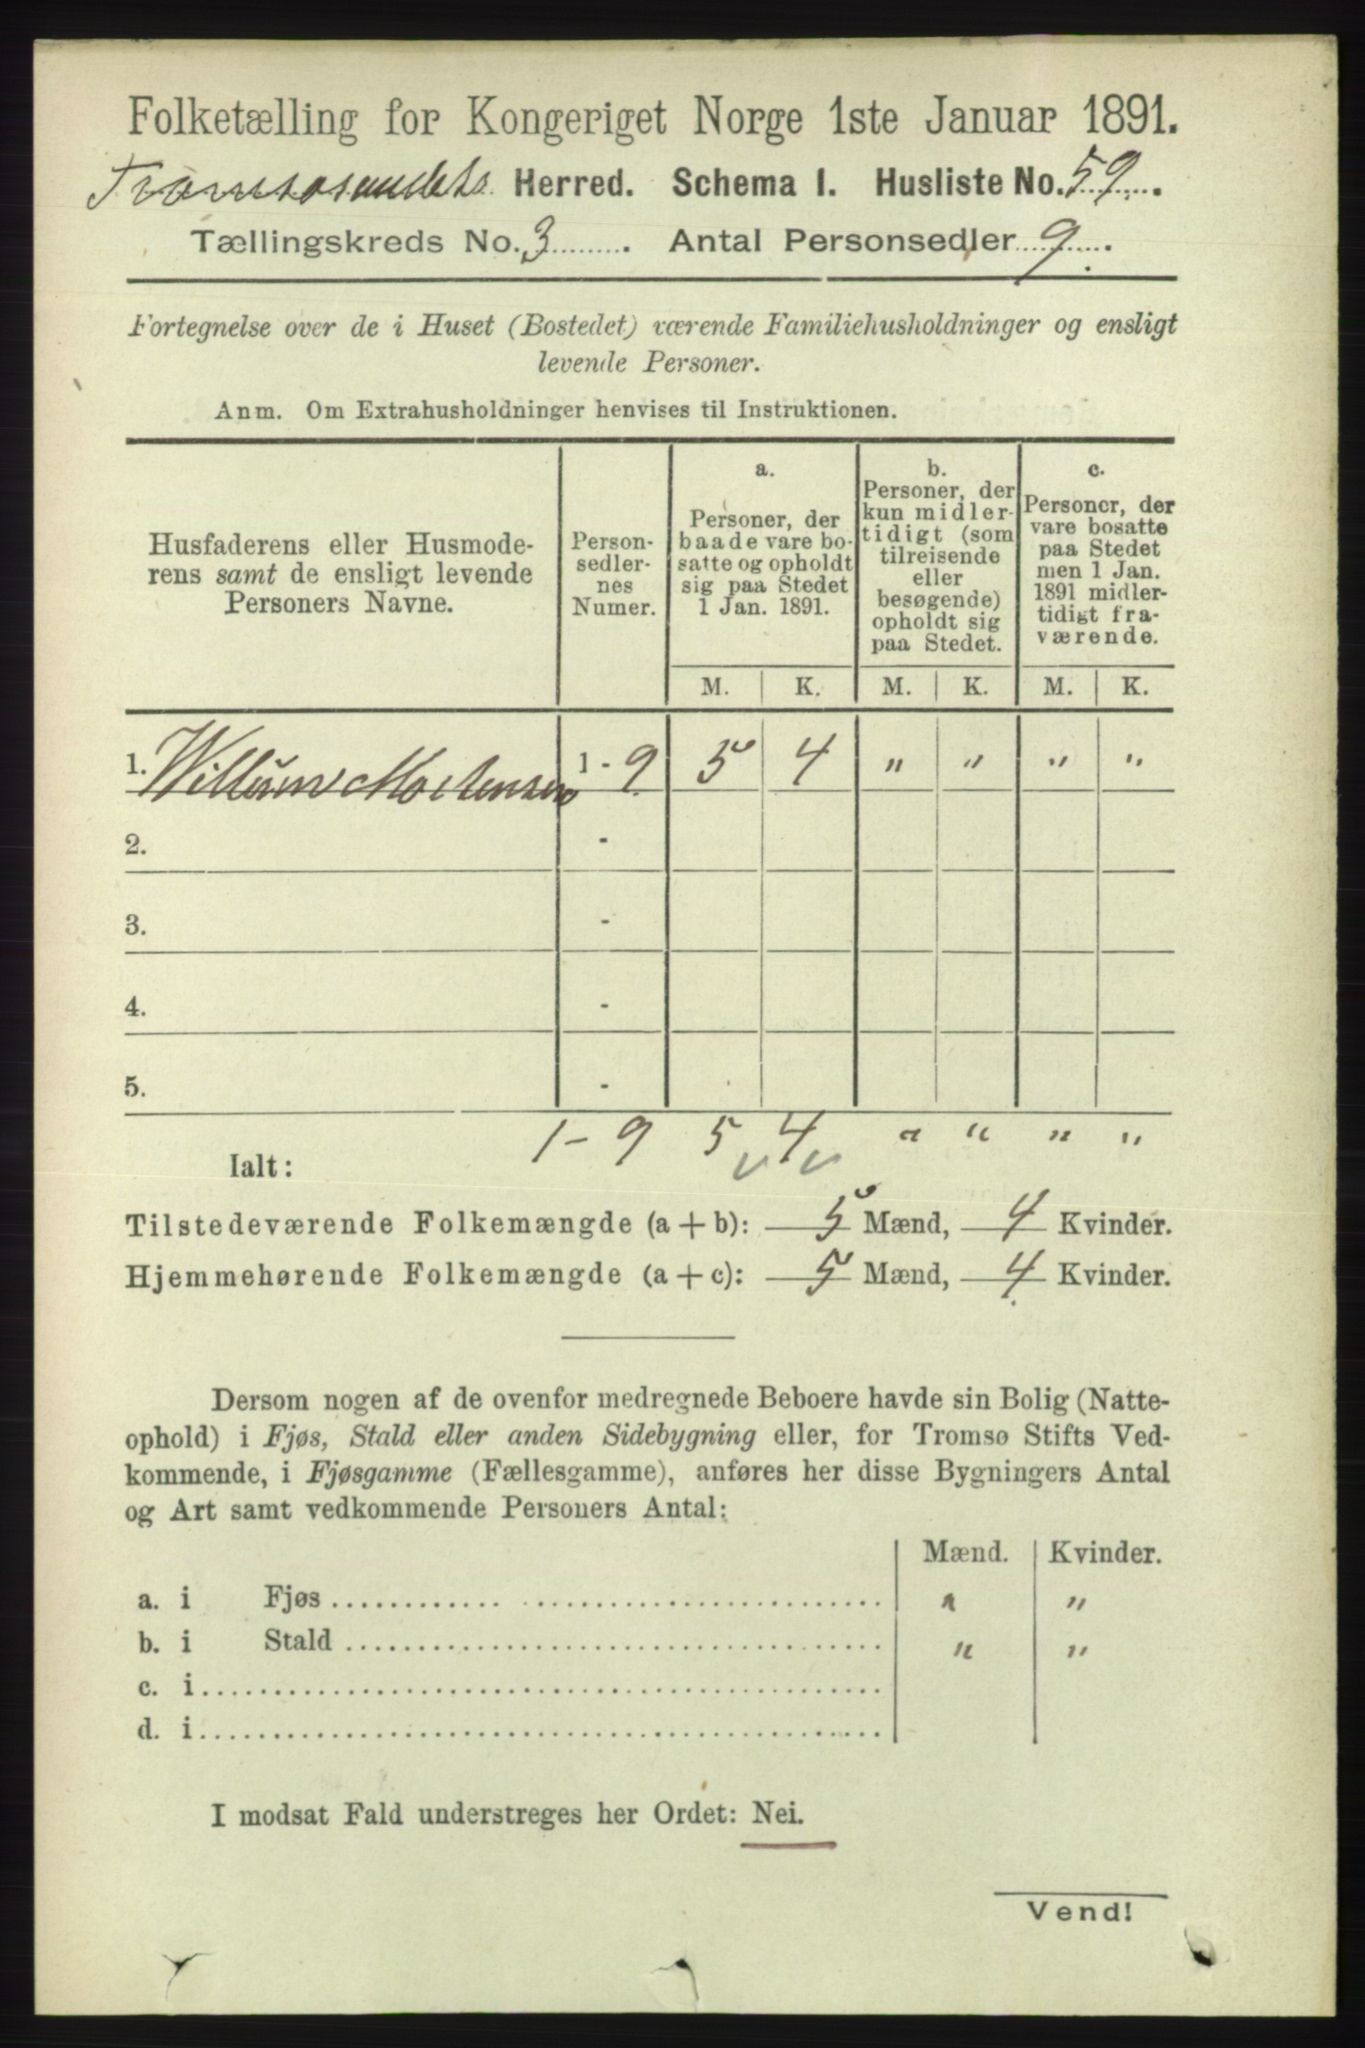 Folketælling for Kongeriget Norge 1ste Januar 1891.
Tromsøsundets Herred. Schema I. Husliste No. 59.
Tællingskreds No. 3. Antal Personsedler 9.
Fortegnelse over de i Huset (Bostedet) værende Familiehusholdninger og ensligt
levende Personer.
Anm. Om Extrahusholdninger henvises til Instruktionen.
Husfaderens eller Husmode-
rens samt de ensligt levende
Personers Navne.
Person-
sedler-
nes
Numer.
a.
Personer, der
baade vare bo-
satte og opholdt
sig paa Stedet
1 Jan. 1891.
b.
Personer, der
kun midler-
tidigt (som
tilreisende
eller
besøgende)
opholdt sig
paa Stedet.
c.
Personer, der
vare bosatte
paa Stedet
men 1 Jan.
1891 midler-
tidigt fra-
værende.
M. K. M. K. M. K.
1. Willum Mortensen 1 - 9 5 4 " " " "
2. -
3. -
4. -
5. -
Ialt: 1 - 9 5 4 " " " "
Tilstedeværende Folkemængde (a + b): 5 Mænd, 4 Kvinder.
Hjemmehørende Folkemængde (a + c): 5 Mænd, 4 Kvinder.
Dersom nogen af de ovenfor medregnede Beboere havde sin Bolig (Natte-
ophold) i Fjøs, Stald eller anden Sidebygning eller, for Tromsø Stifts Ved-
kommende, i Fjøsgamme (Fællesgamme), anføres her disse Bygningers Antal
og Art samt vedkommende Personers Antal:
Mænd. Kvinder.
a. i Fjøs " "
b. i Stald " "
c. i
d. i
I modsat Fald understreges her Ordet: Nei.
Vend!